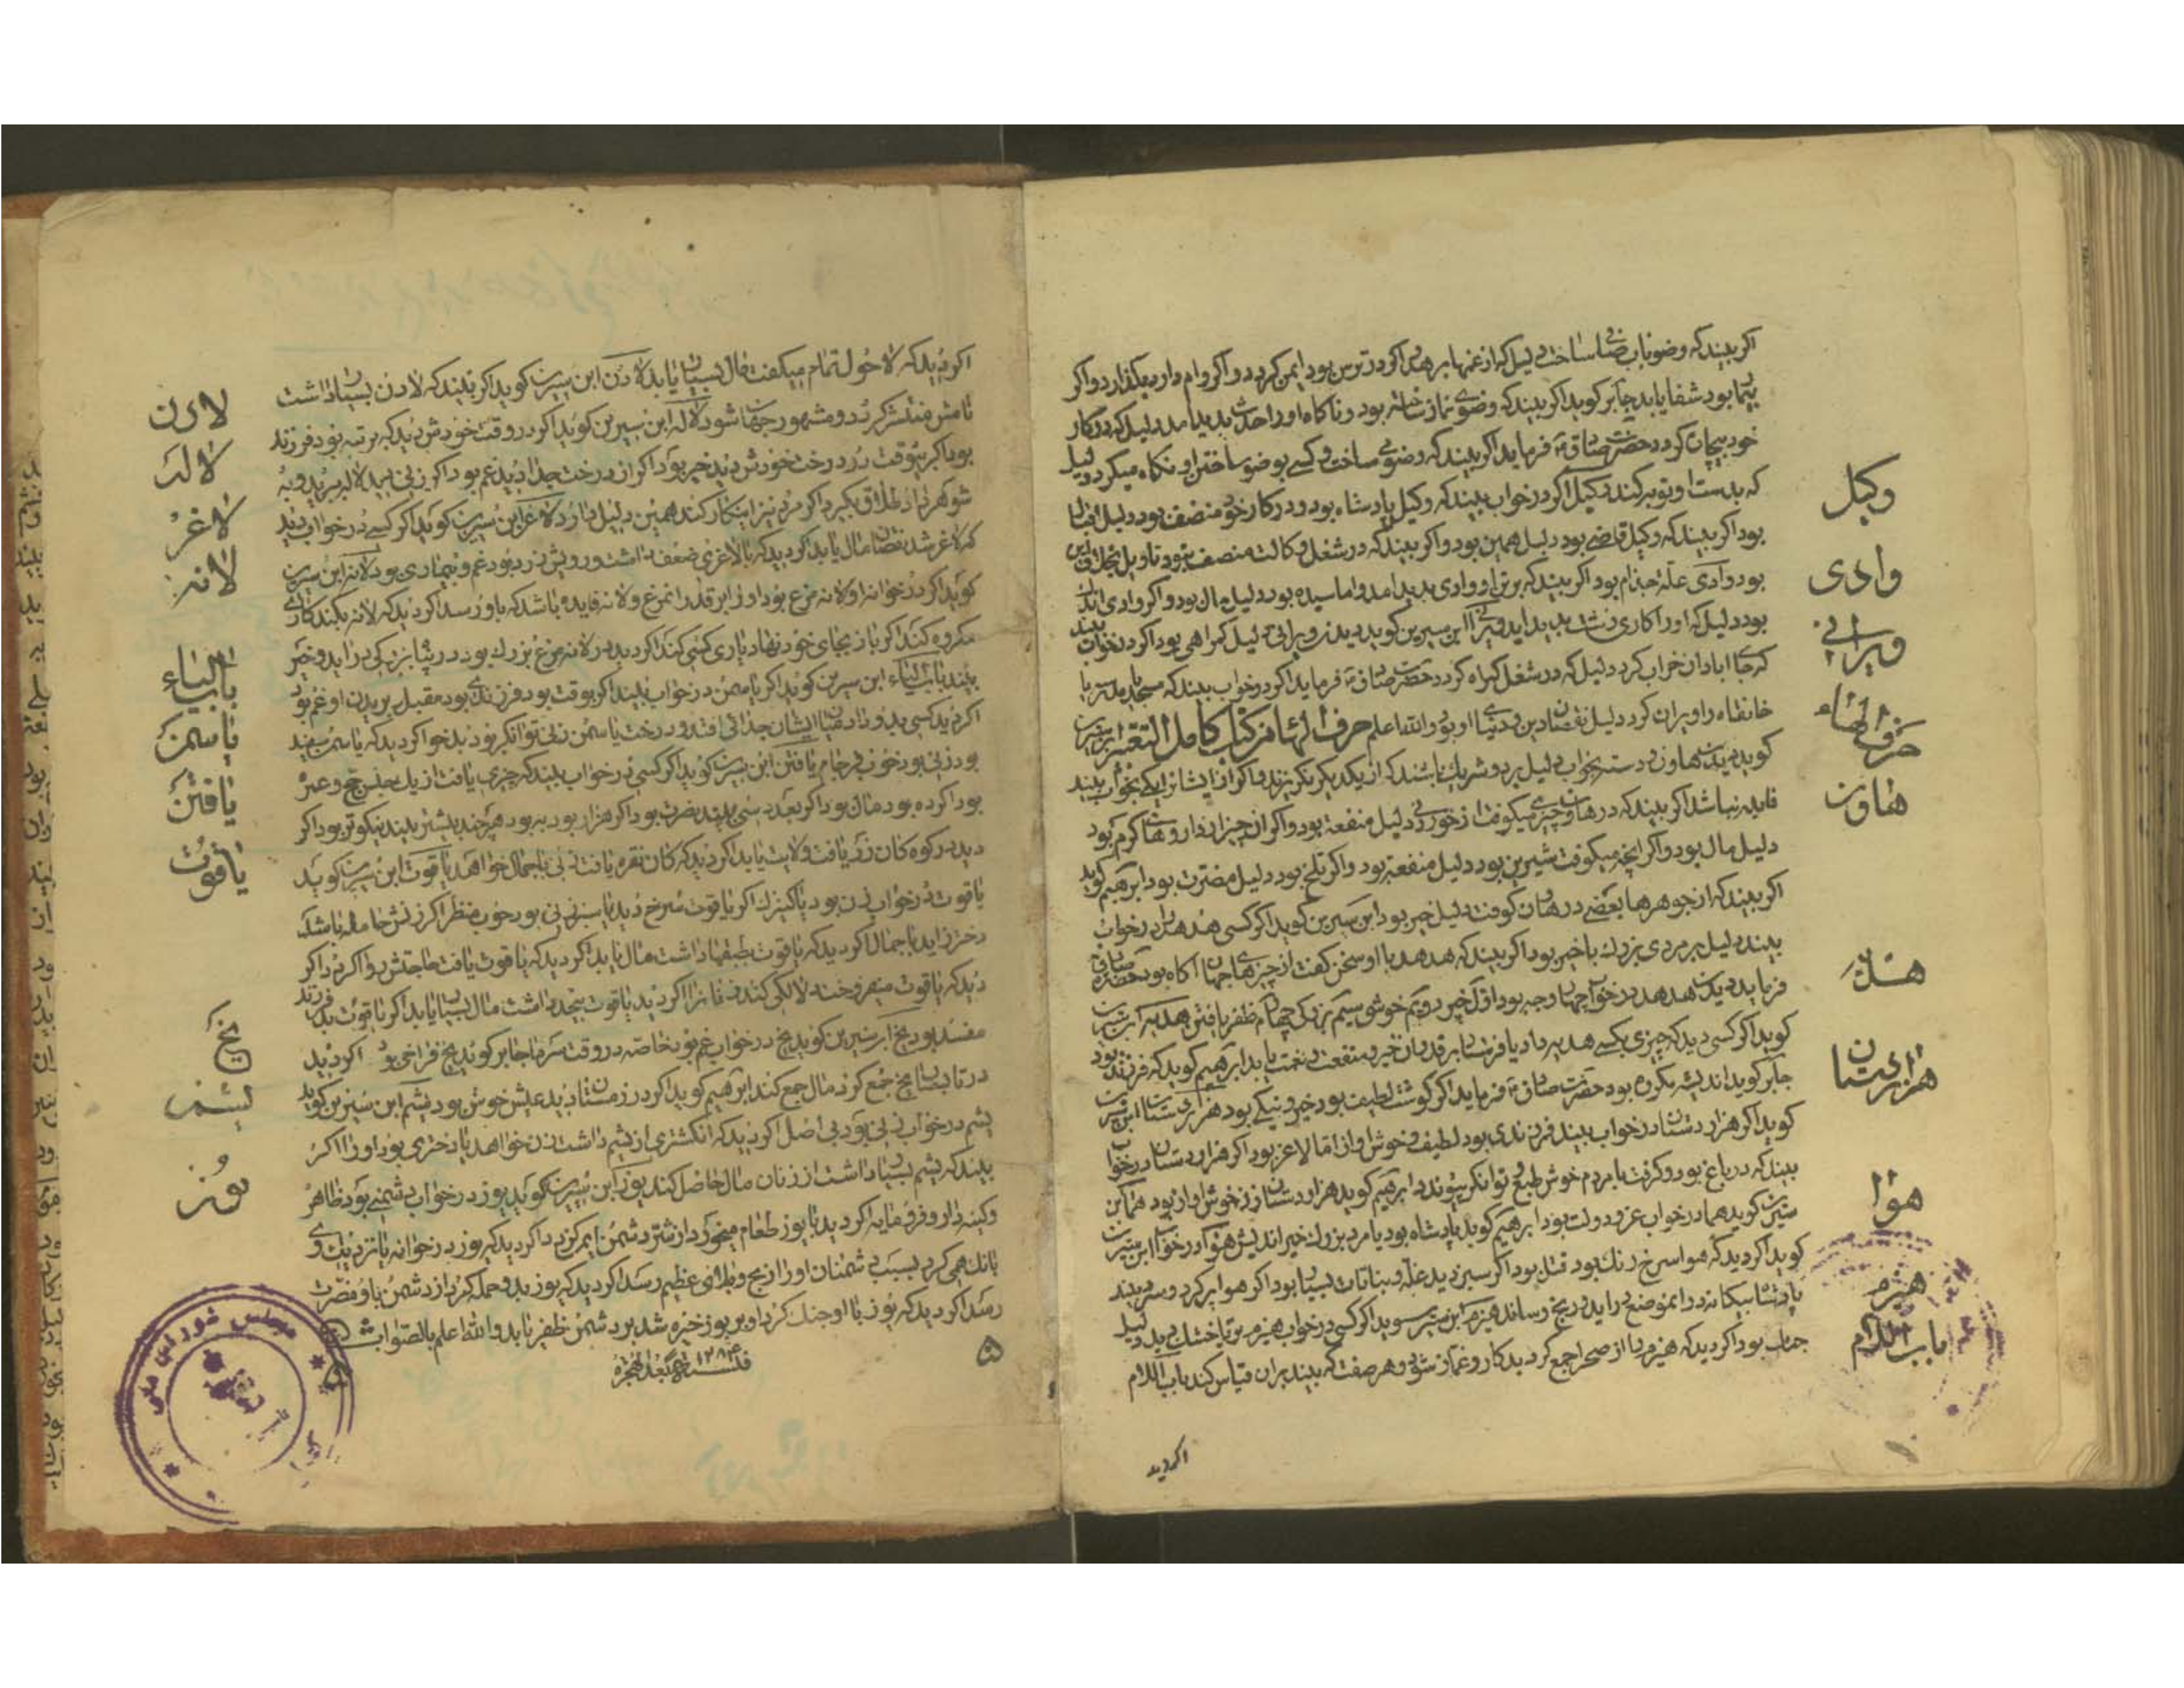 اگر بیند که وضو باب صافی ساخت دلیل که از غمها برهد اگر در ترس بود ایمن گردد و اگر وام دار بیند وام بگذارد و اگر
بیمار بود شفا یابد جابر کوید اگر بیند که وضوی نماز ساخته بود و ناکاه او را حدث پدید آمد دلیل که در کار
خود پیچان گردد حضرت صادق ع فرماید اگر بیند که وضوی ساخت و کسی بوضو ساختن او نکاه میکرد دلیل
که بدست او توبه کنند وکیل اگر در خواب بیند که وکیل پادشاه بود و در کار خود منصف بود دلیل
بود اگر بیند که وکیل قاضی بود دلیل همین بود و اگر بیند که در شغل وکالت منصف نبود تاویل بخلاف این
بود وادی علة جذام بود اگر بیند که بر تن او وادی پدید آمد و اماسیده بود دلیل مال بود و اگر وادی
بود دلیل که او را کاری پدید آید ویرانی ابن سیرین کوید دیدن ویرانی دلیل گمراهی بود اگر در خواب بیند
که جای ابادان خراب کرد دلیل که در شغل گمراه گردد حضرت صادق ع فرماید اگر در خواب بیند که مسجد یا مدرسه یا
خانقاه را ویران کرد دلیل نقصان دین و دنیای او بود والله اعلم حرف الهاء من کتاب کامل التعبیر ابن سیرین
کوید دیدن هاون و دسته بخواب دلیل بر دو شریک باشند که از یکدیگر نگریزند و اگر از ایشان یکی بخواب بیند
فایده نباشد اگر بیند که در هاون چیزی میکوفت از خوردنی دلیل منفعة بود و اگر ان چیز از داروهای گرم بود
دلیل مال بود و اگر انچه میکوفت شیرین بود دلیل منفعة بود و اگر تلخ بود دلیل مضرت بود ابرهیم کوید
اگر بیند که از جوهرها بعضی در هاون کوفت دلیل خیر بود ابن سیرین کوید اگر کسی هدهد را در خواب
بیند دلیل بر مردی بزرک باخبر بود اگر بیند که هدهد با او سخن کفت از چیزهای جهان اکاه بود حضرت صادق
فرماید دیدن هدهد در خواب چهار وجه بود اول خیر دویم خوشی سیم بزرکی چهارم ظفر یافتن هدیه ابن سیرین
کوید اگر کسی دید که چیزی بکسی هدیه داد یا فرستاد بر قدر ان خیر و منفعت و نعمت یابد ابرهیم کوید که فرزند بود
جابر کوید اندیشه مکروه بود حضرت صادق ع فرماید اگر گوشت لطیف بود خیر و نیکی بود هزاردستان ابن سیرین
کوید اگر هزاردستان در خواب بیند فرزندی بود لطیف و خوش اواز اما لاغر بود اگر هزاردستان در خواب
بیند که در باغ بود و گرفت با مردم خوش طبع و توانگر پیوندد ابرهیم کوید هزاردستان زن خوش اواز بود هما ابن
سیرین کوید هما در خواب عز و دولت بود ابرهیم کوید پادشاه بود یا مرد بزرک خیر اندیش هوا در خواب ابن سیرین
کوید اگر دید که هوا سرخ رنک بود قتل بود اگر سبز دید غله و نباتات بسیار بود اگر هوا پر گرد و سرد بیند
پادشاه بیگانه در انموضع دراید و رنج رساند هیزم ابن سیرین کوید اگر کسی در خواب هیزم تر یا خشک بیند دلیل
جدال بود اگر دید که هیزم را از صحرا جمع کرد بدکار و غماز شود و هر صفت که بیند بران قیاس کند باب اللام
وکیل
وادی
ویرانی
حرف الهاء
هاون
هدیه
هزاردستان
هوا
هیزم
باب اللام
اکر دید
اگر دید که لاحول تمام میکفت مال بسیار یابد لادن ابن سیرین کوید اگر بیند که لادن بسیار داشت
نامش منتشر گردد و مشهور جهان شود لاله ابن سیرین کوید اگر در وقت خودش دید که بر تنه بود فرزند
بود اگر بیوقت در درخت خودش دید خیر بود اگر از درخت جدا دید غم بود اگر زنی بیند لاله سرید و به
شوهر داد طلاق بگیرد اگر مرد نیز اینکار کند همین دلیل دارد لاغر ابن سیرین کوید اگر کسی در خواب دید
که لاغر شد نقصان مال یابد اگر دید که با لاغری ضعف داشت و رویش زرد بود غم و بیماری بود لانه ابن سیرین
کوید اگر در خوابه او لانه مرغ بود او را بر قدر انمرغ و لانه فایده باشد که باو رسد اگر دید که لانه بکند کاری
مکروه کند اگر باز بجای خود نهاد یاری کسی کند اگر دید در لانه مرغ بزرک بود در پیش بزرکی دراید و خیر
بیند باب الیاء ابن سیرین کوید اگر یاسمن در خواب بیند اگر بوقت بود فرزندی بود مقبل بریدن او غم بود
اگر دید کسی بدو داد میان ایشان جدائی افتد و درخت یاسمن زنی توانکر بود بدخو اگر دید که یاسمن سفید
بود زنی بود خوب فرجام یافتن ابن سیرین کوید اگر کسی در خواب بیند که چیزی یافت از یک جنس حج و عمره
بود اگر ده بود مال بود اگر بعدد سی بیند نصرت بود اگر هزار بود به بود هر چند بیشتر بیند نیکوتر بود اگر
دید در کوه کان زر یافت ولایت یابد اگر دید که کان نقره یافت زنی باجمال خواهد یاقوت ابن سیرین کوید
یاقوت در خواب زن بود یا کنیزک اگر یاقوت سرخ دید یا سبز زنی بود خوب منظر اگر زنش حامله باشد
دختر زاید باجمال اگر دید که یاقوت طبقها داشت مال یابد اگر دید که یاقوت یافت حاجتش روا گردد اگر
دید که یاقوت میفروخت دلالکی کند فرزند اگر دید یاقوت بیحد داشت مال بسیار یابد اگر یاقوت بد
مفسد بود یخ ابن سیرین کوید یخ در خواب غم بود خاصه در وقت سرما جابر کوید یخ فراخی بود اگر دید
در تابستان یخ جمع کرد مال جمع کند ابرهیم کوید اگر در زمستان دید عیش خوش بود یشم ابن سیرین کوید
یشم در خواب زنی بود بی اصل اگر دید که انکشتری از یشم داشت زن خواهد یا دختری بود او را اگر
بیند که یشم بسیار داشت از زنان مال حاصل کند یوز ابن سیرین کوید یوز در خواب دشمنی بود ظاهر
و کینه دار و فرومایه اگر دید با یوز طعام میخورد از شر دشمن ایمن گردد اگر دید که یوز در خوابه یا نزدیک وی
بانک همی کرد بسبب دشمنان او را رنج و بلائی عظیم رسد اگر دید که یوز بدو حمله کرد از دشمن باو مضرت
رسد اگر دید که یوز با او جنک کرد او بر یوز خیره شد بر دشمن ظفر یابد والله اعلم بالصواب
۱۲۸۴
لادن
لاله
لاغر
لانه
باب الیاء
یاسمن
یافتن
یاقوت
یخ
یشم
یوز
مجلس شورای ملی